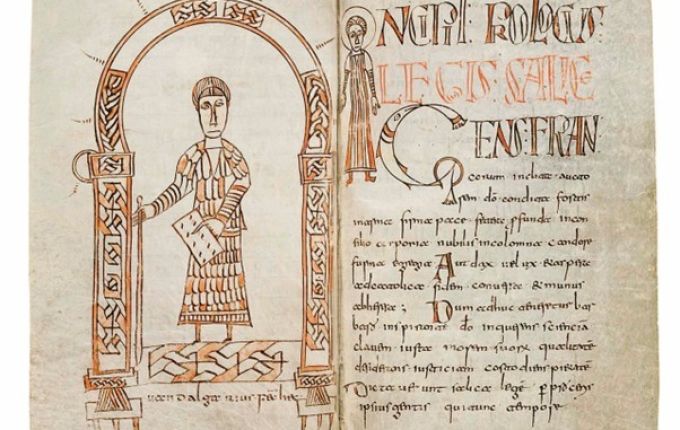 INCIPIT PROLOGUS:
LEGIS SALICE
GENS FRAN
corum inclita aucto
rem do condita fortis
in arma firma pace profunda in con
silio corporia nubilis incolomna candore
forma egregia Audax uelix et aspera
ad catolica fidem conuersa emunus
ab heresa; Dum adhuc teneretur bar
bara inspirante do inquerens sciencia
clauem iuxta morem suorum qualitate
desiderans iusticiam custodiens pietate
Dictauerunt salica lege per
ipsius gentis qui tunc tempore
uuandalgarius fec hec